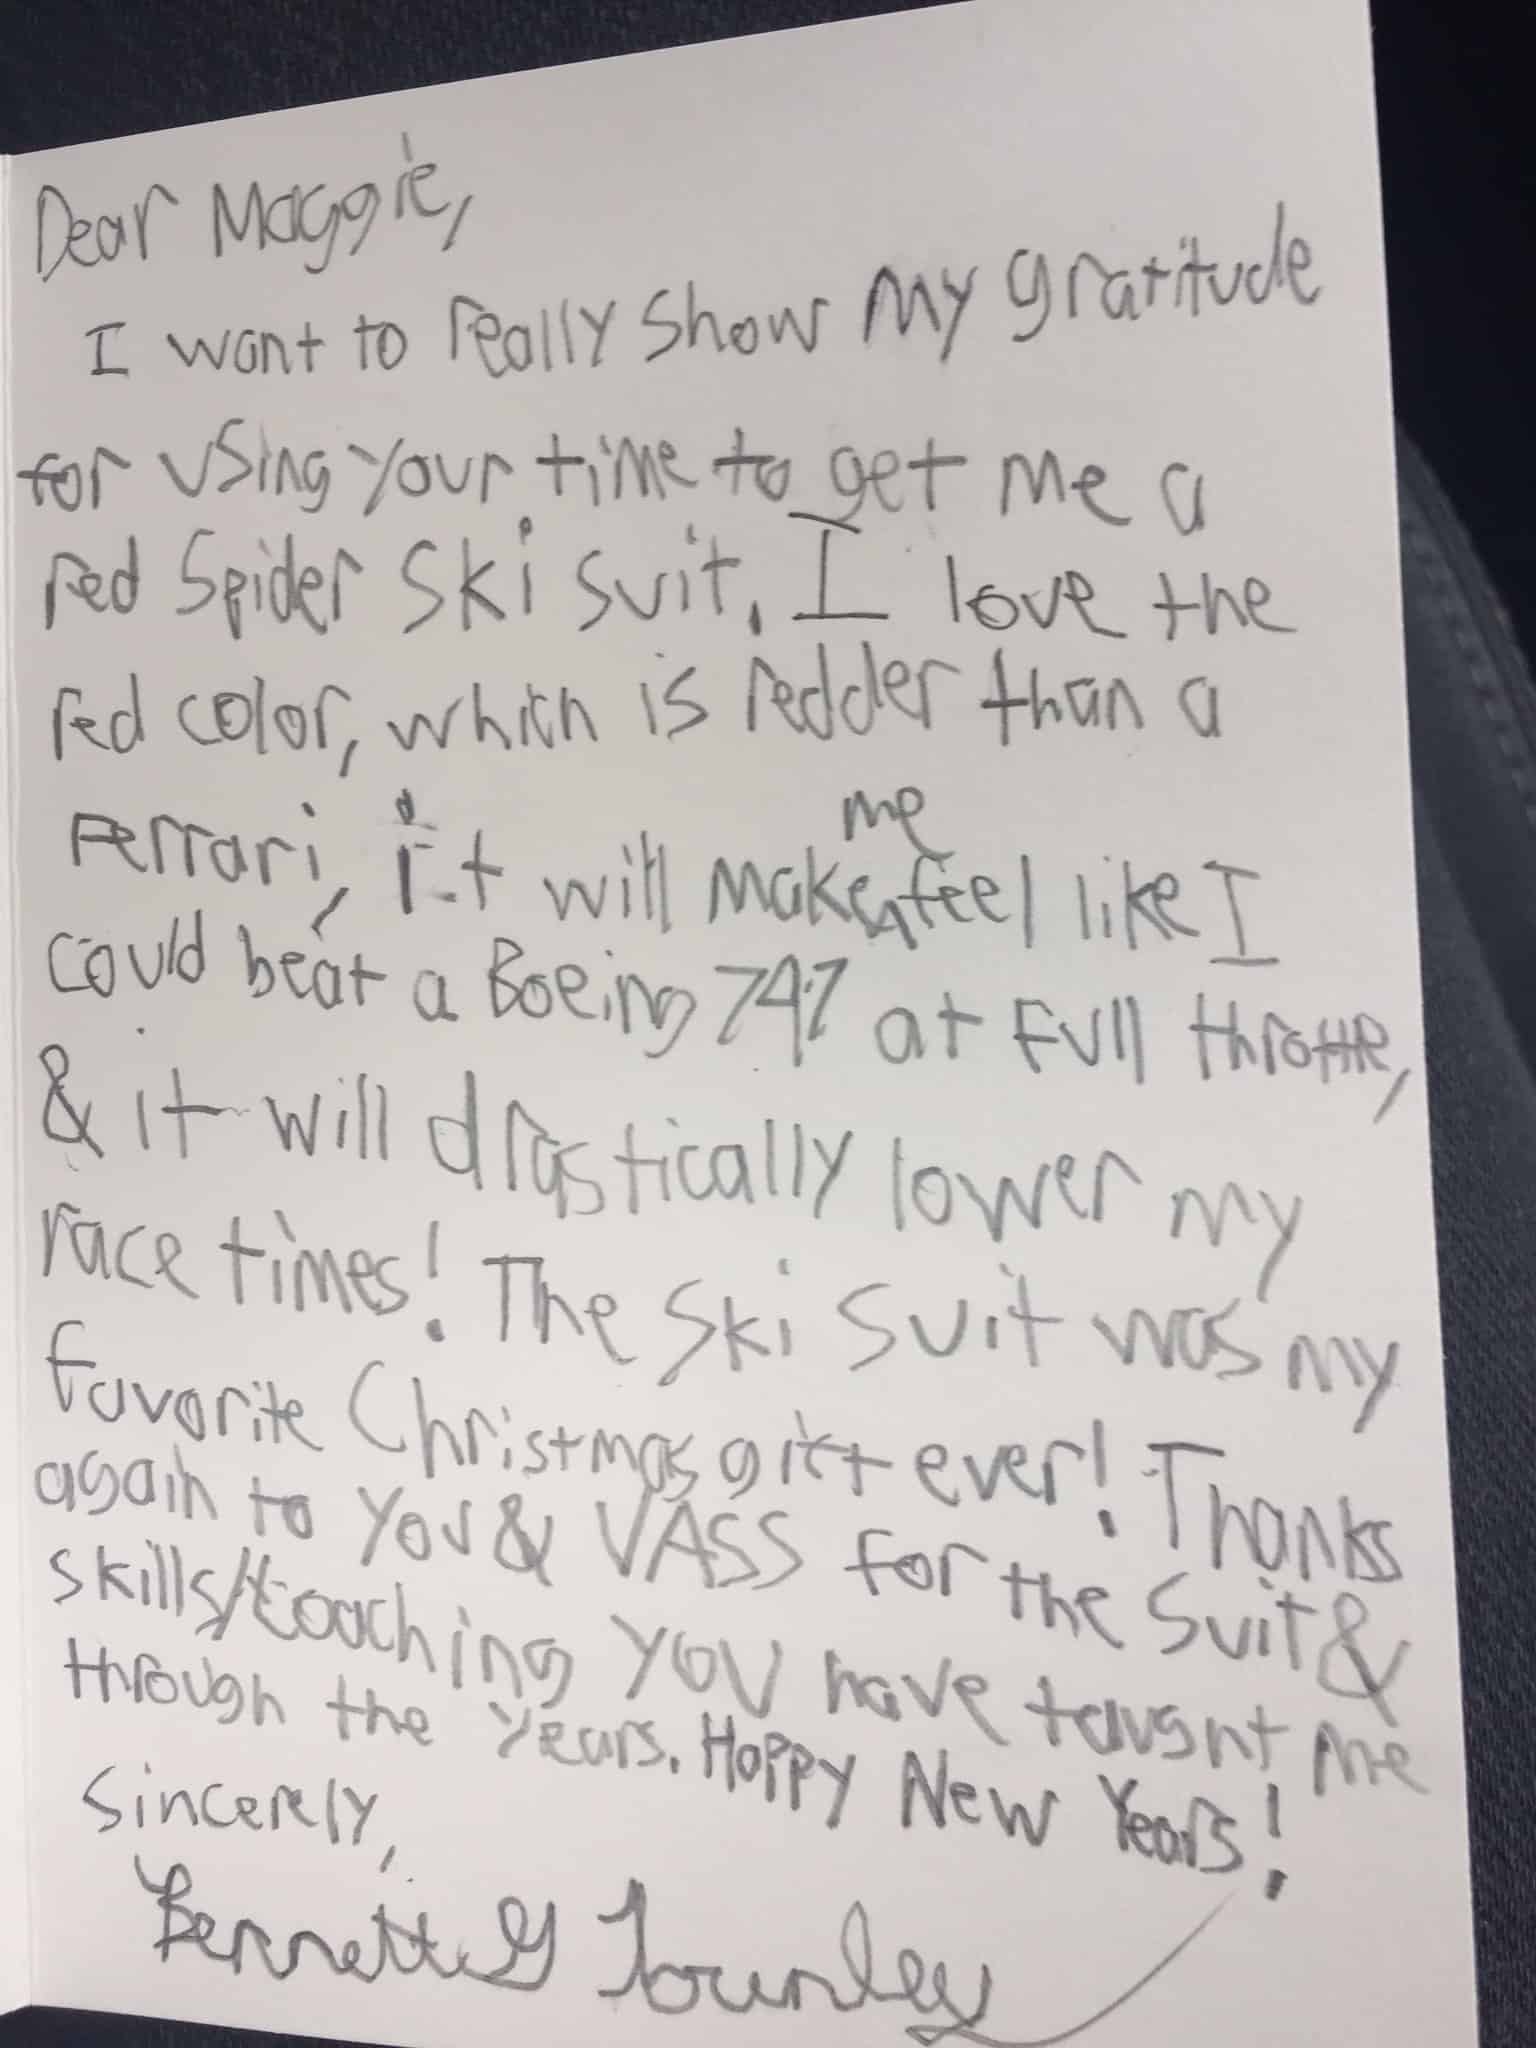 Dear Maggie,
I want to really show my gratitude
for using your time to get me a
red Spider Ski suit. I love the
red color, which is redder than a
Ferrari, it will make me feel like I
could beat a Boeing 747 at full throttle,
& it will drastically lower my
race times! The Ski suit was my
favorite Christmas gift ever! Thanks
again to you & VASS for the suit &
skills/coaching you have taught me
through the years. Happy New Years!
Sincerely,
Bennett G Tounley